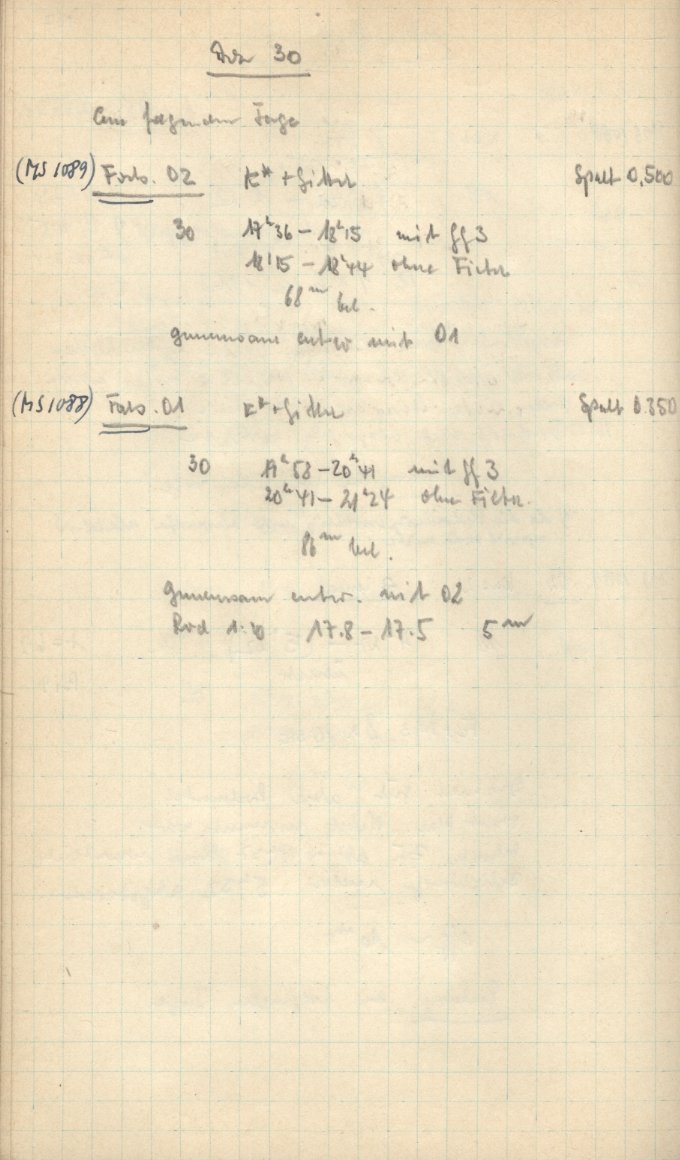 30
Am folgenden Tage
(MS 1089) Farb. 02 K* + Gitter Spalt 0.500
30 17h36 – 18h15 mit gg 3
18h15 – 18h44 ohne Filter
68m bel.
gemeinsam entw mit 01
(MS 1088) Farb. 01 K* + Gitter Spalt 0.350
30 19h58 – 20h41 mit gg 3
20h41 – 21h24 ohne Filter
86m bel.
Gemeinsam entw. mit 02
Rod 17.8 – 17.5 5m